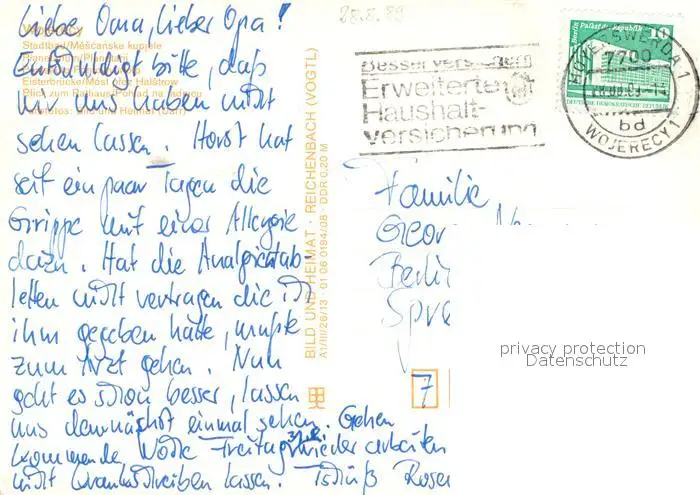 Liebe Oma, lieber Opa!
Entschuldigt bitte, daß
wir uns haben nicht
sehen lassen. Horst hat
seit ein paar Tagen die
Grippe mit einer Allergie
dazu. Hat die Analgintab-
letten nicht vertragen die ich
ihm gegeben hatte, mußte
zum Arzt gehen. Nun
geht es schon besser, lassen
uns demnächst einmal sehen. Gehen
kommende Woche Freitag wieder arbeiten
nicht krankschreiben lassen. Tschüß
28.8.89
Besser versichern
Erweiterte
Haushalt-
versicherung
HOYERSWERDA 1
7700
bd
WOJERECY 1
Berlin, Palast der Republik 10
DEUTSCHE DEMOKRATISCHE REPUBLIK
Stadtbad/Měšćanske kupjele
BILD UND HEIMAT · REICHENBACH (VOGTL)
A1/III/26/13 · 01 06 0194/08 · DDR 0,20 M
Familie
Geor
Berli
Spre
7
privacy protection
Datenschutz